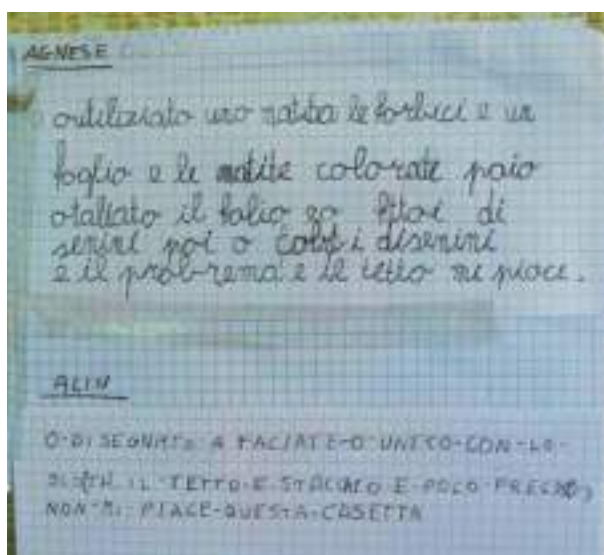 AGNESE
outiliziato uno matita le forbici e un
foglio e le matite colorate poio
otaliato il folio go di
senini poi o i disenini
e il problrema e il tetto mi piace.
ALIN
O-DISEGNATO A FACIATE-O UNITO-CON-LO-
IL-TETTO-E STACIATO E-POCO-PRECISO,
NON-MI-PIACE-QUESTA-CASETTA